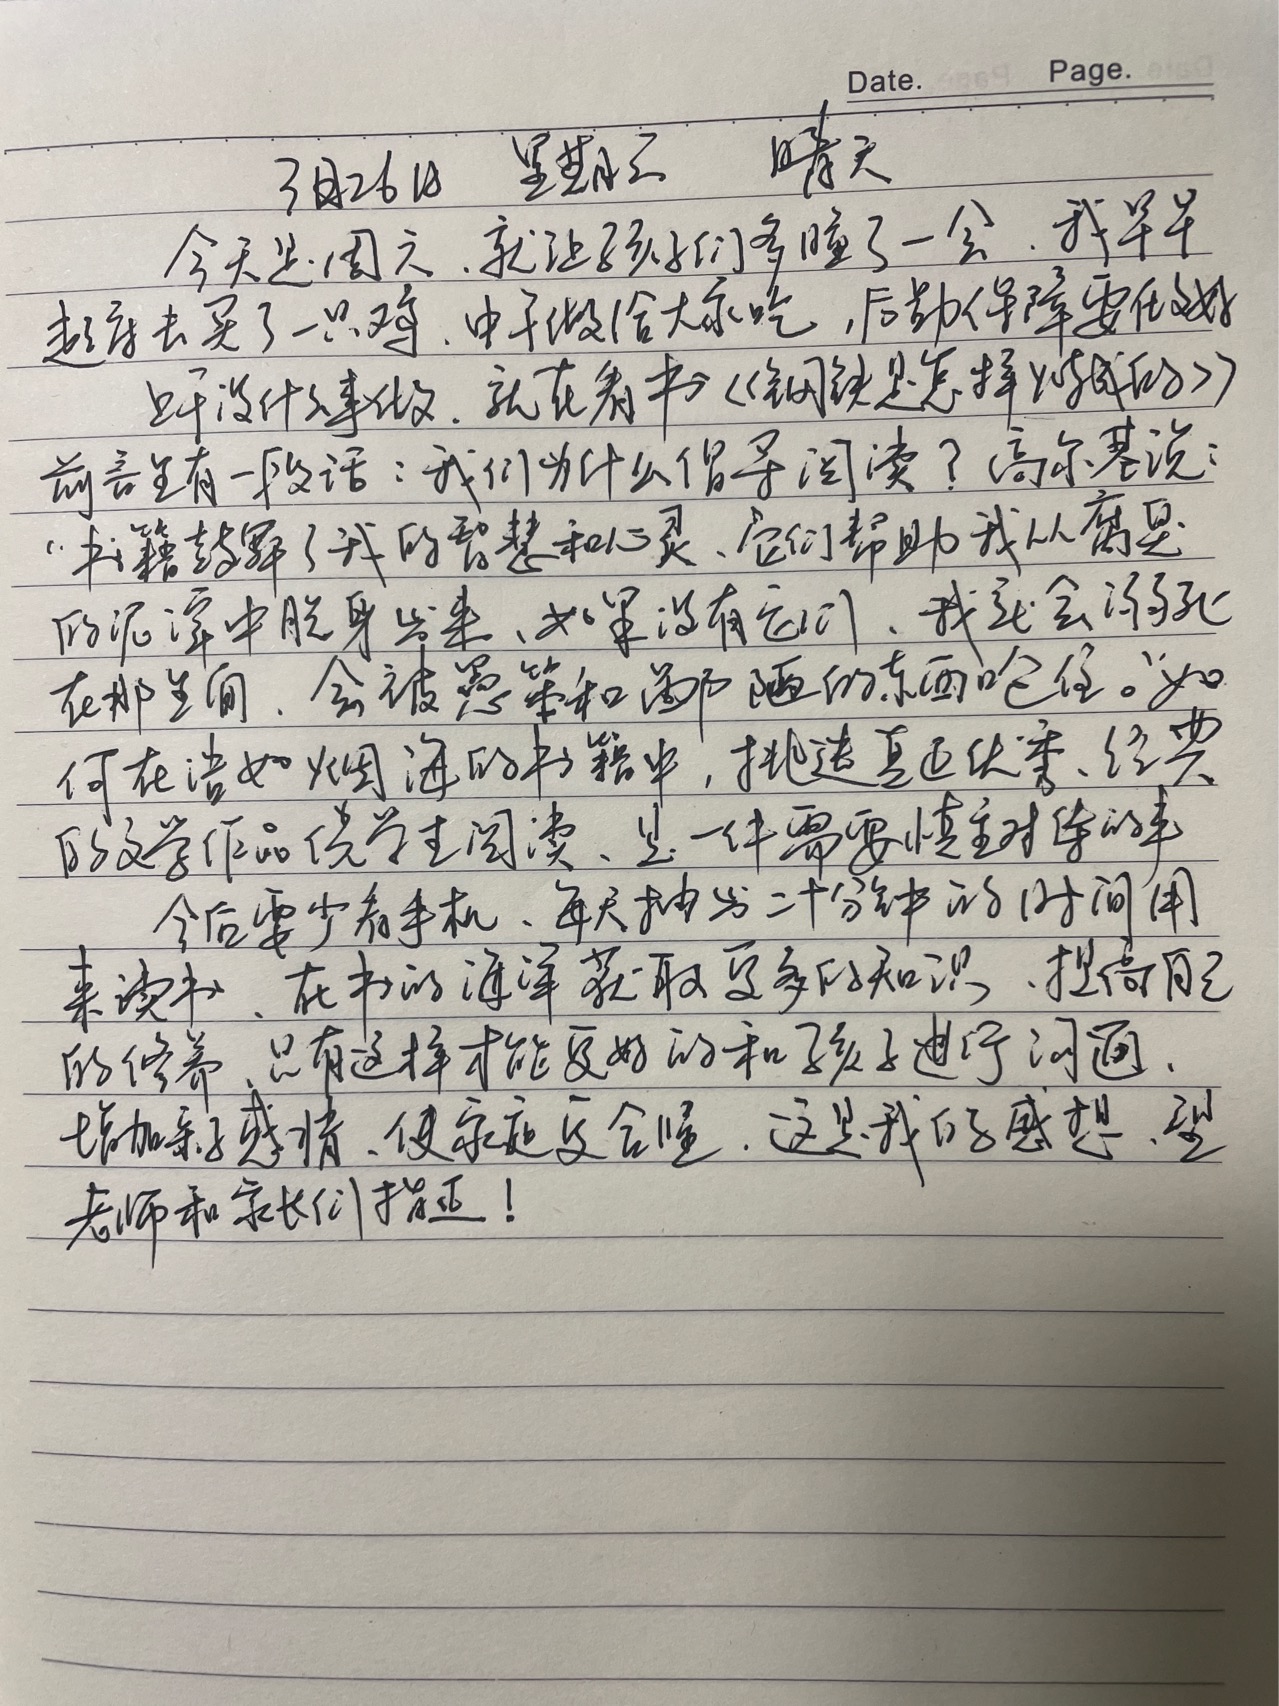 Date. Page.
3月26日 星期六 晴天
今天是周六、就让孩子们多睡了一会、我早早
起床去买了一只鸡、中午做给大家吃，后勤保障要做好
上午没什么事做、就在看书《钢铁是怎样炼成的》
前言里有一段话：我们为什么倡导阅读？高尔基说：
“书籍鼓舞了我的智慧和心灵、它们帮助我从腐臭
的泥潭中脱身出来、如果没有它们、我就会溺死
在那里面、会被愚笨和鄙陋的东西呛住。”如
何在浩如烟海的书籍中，挑选真正优秀、经典
的文学作品供学生阅读、是一件需要慎重对待的事
今后要少看手机、每天抽出二十分钟的时间用
来读书、在书的海洋获取更多的知识、提高自己
的修养、只有这样才能更好的和孩子进行沟通、
增加亲子感情、使家庭更合睦、这是我的感想、望
老师和家长们指正！